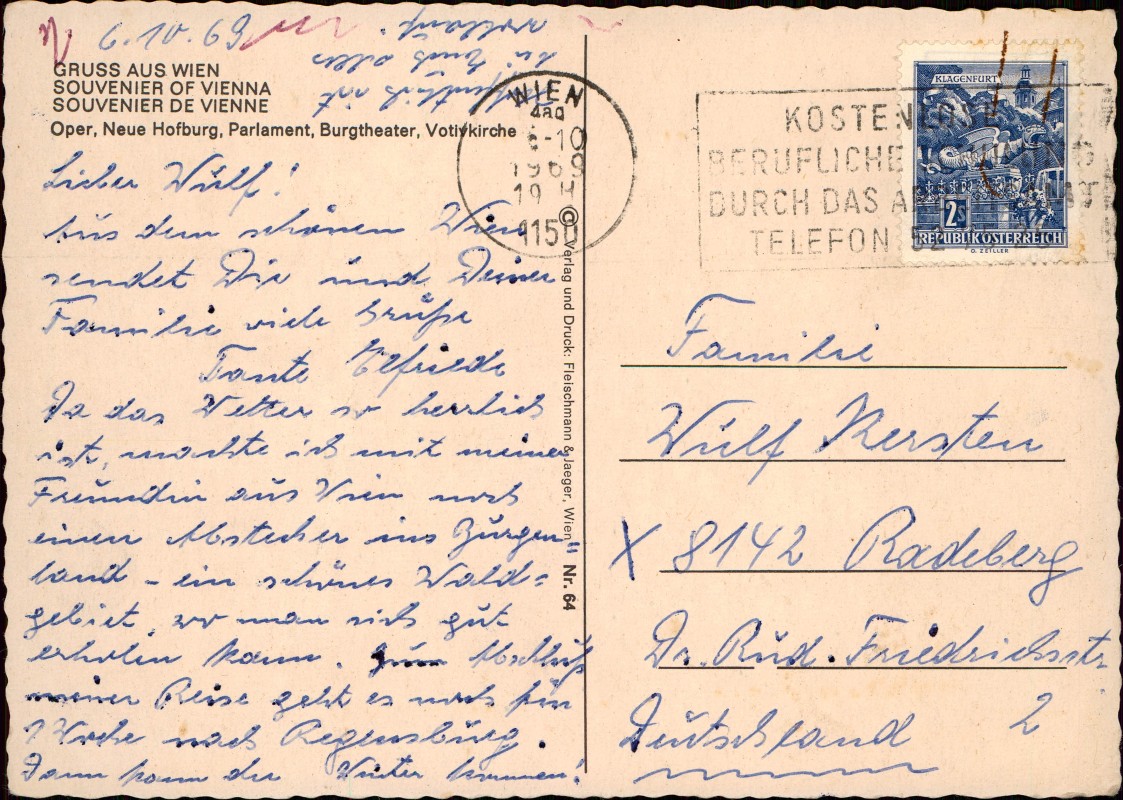 6.10.69
GRUSS AUS WIEN
SOUVENIER OF VIENNA
SOUVENIER DE VIENNE
Oper, Neue Hofburg, Parlament, Burgtheater, Votivkirche
Lieber Wulf!
Aus dem schönen Wien
sendet Dir und Deiner
Familie viele Grüße
Tante Elfriede
Da das Wetter so herrlich
ist, machte ich mit meiner
Freundin aus Wien noch
einen Abstecher ins Burgen=
land - ein schönes Wald=
gebiet, wo man sich gut
erholen kann. Zum Abschluß
meiner Reise geht es noch für
1 Woche nach Regensburg.
Dann kann der Winter kommen!
Hoffentlich ist
bei Euch alles
wohlauf.
WIEN
6-10
1969
19 H
1150
© Verlag und Druck: Fleischmann & Jaeger, Wien
Nr. 64
KOSTENLOSE
BERUFLICHE
DURCH DAS
TELEFON
KLAGENFURT
2S
REPUBLIK ÖSTERREICH
O. ZEILLER
Familie
Wulf Kersten
X 8142 Radeberg
Dr. Rud. Friedrichsstr
2
Deutschland